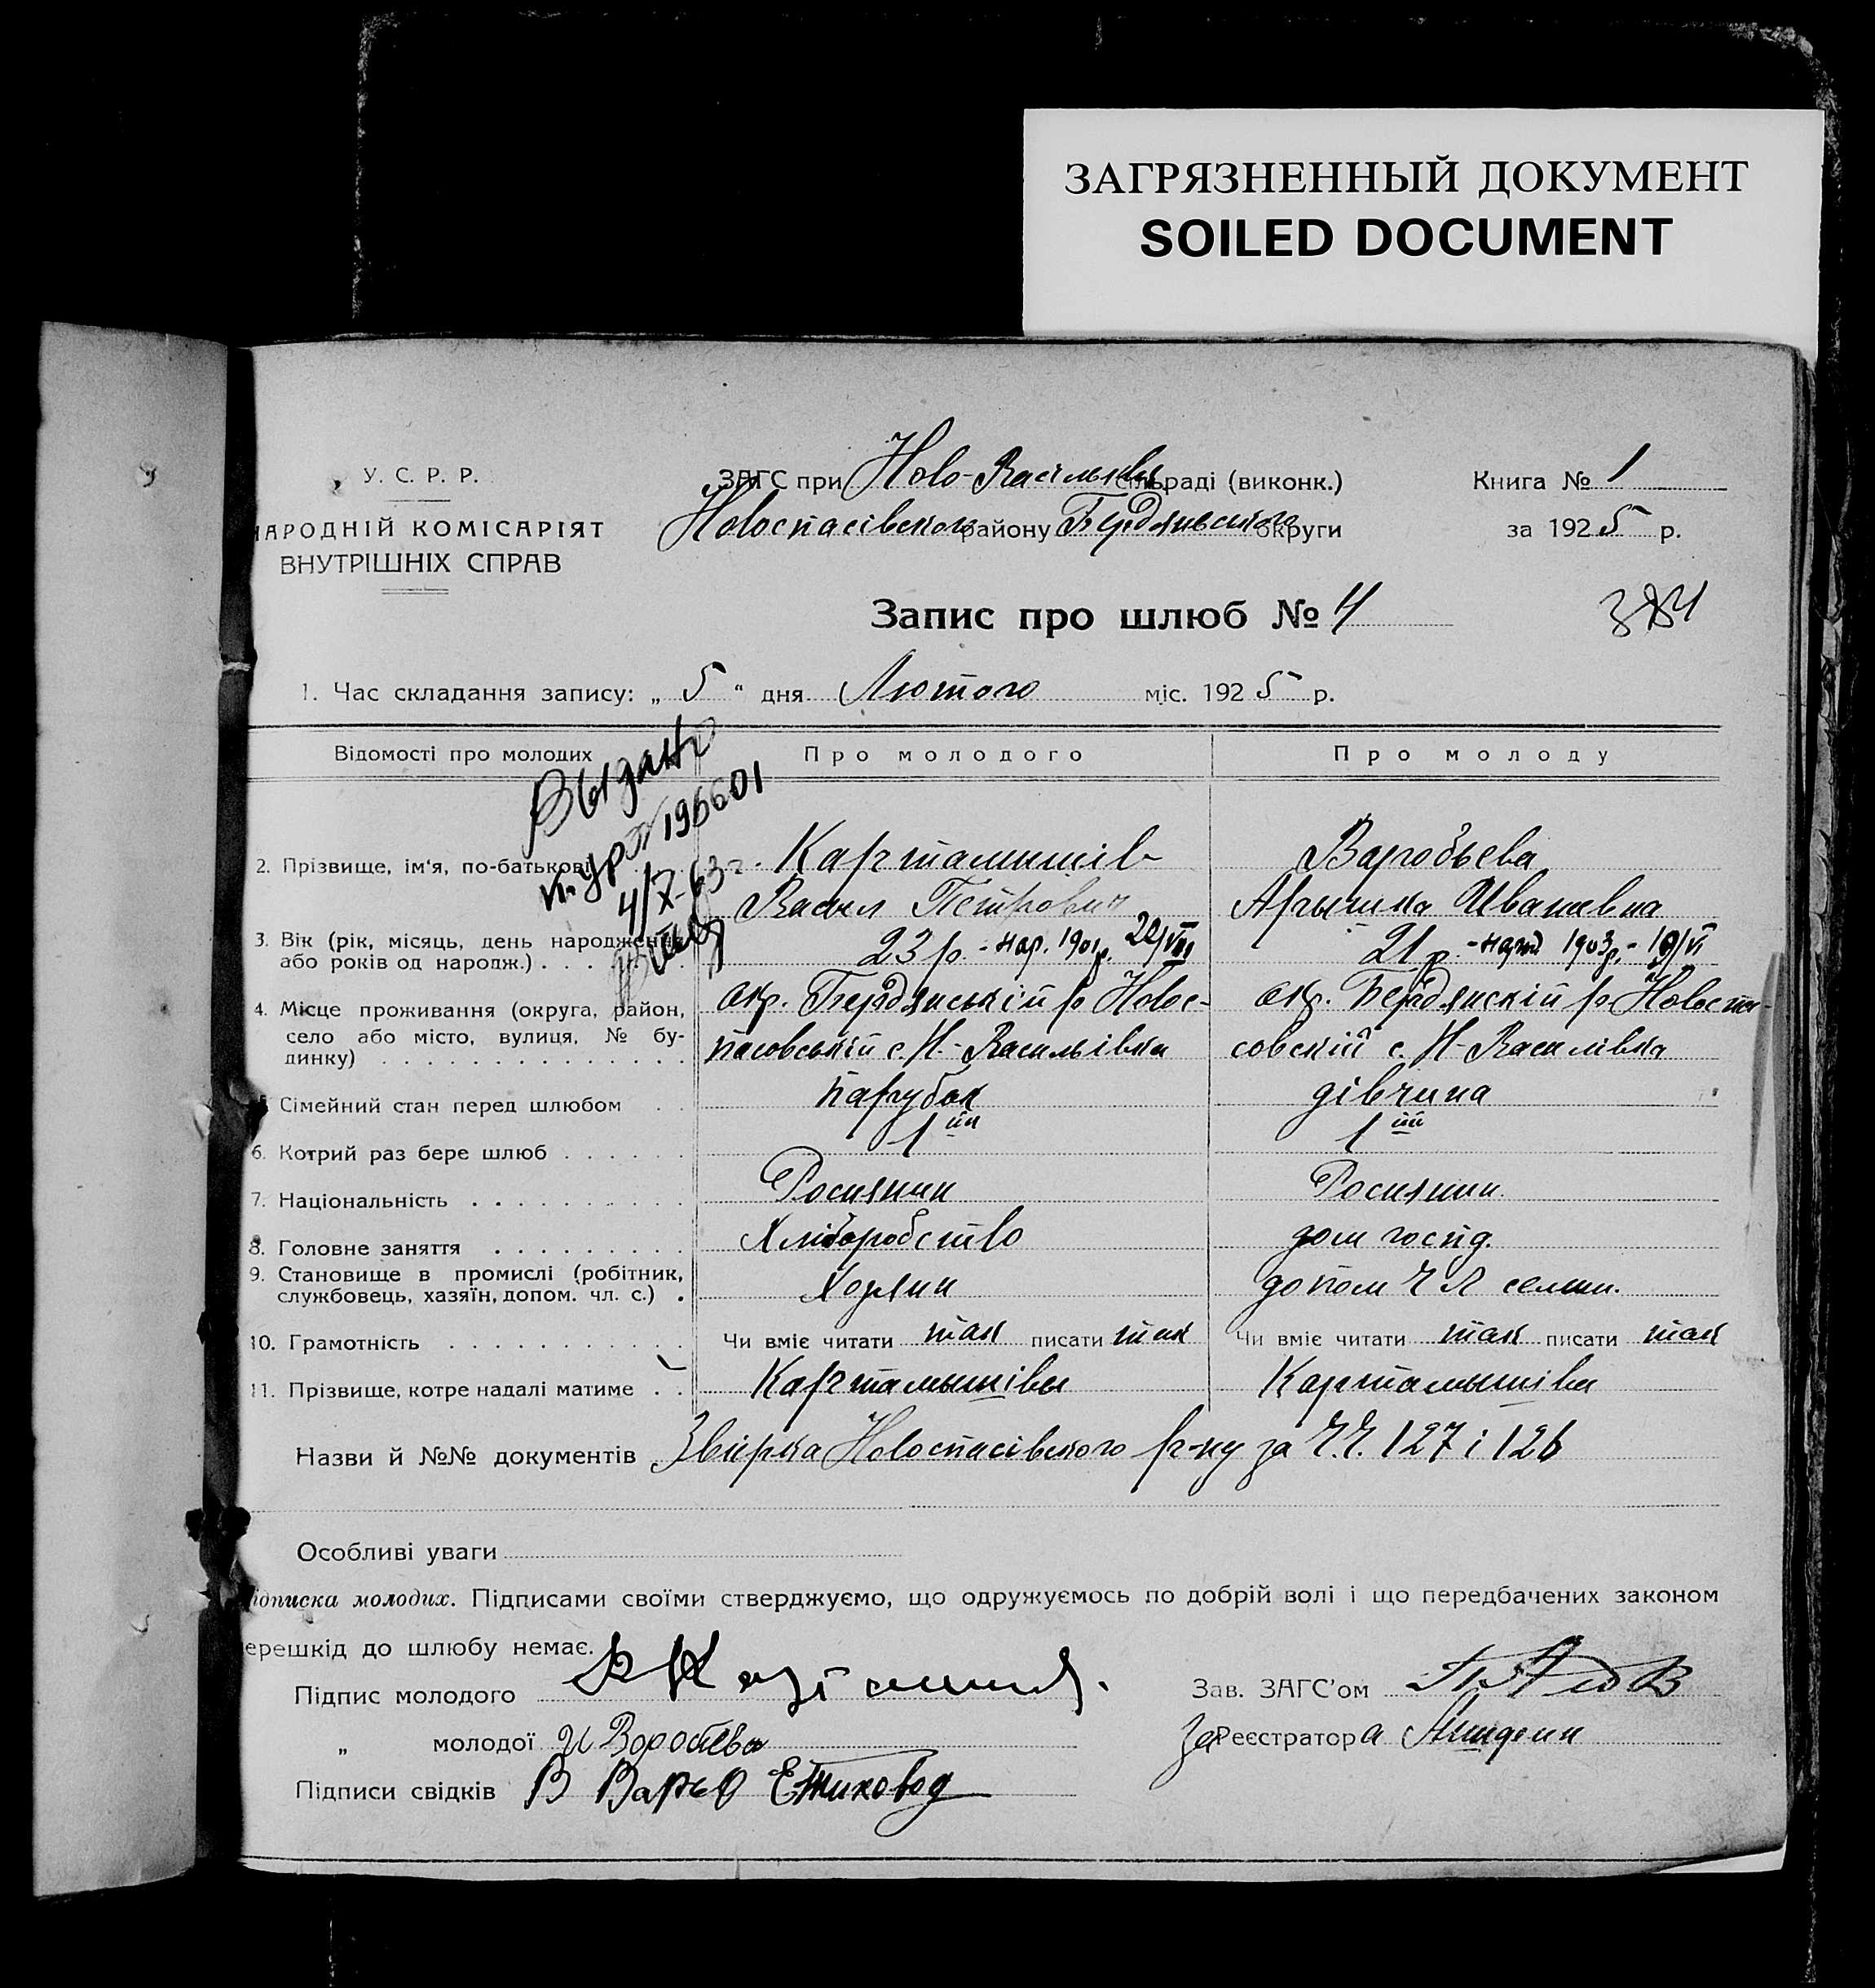 ЗАГРЯЗНЕННЫЙ ДОКУМЕНТ
SOILED DOCUMENT
У. С. Р. Р.
НАРОДНІЙ КОМІСАРІЯТ
ВНУТРІШНІХ СПРАВ
ЗАГС при Ново-Васільевц сільраді (виконк.)
Новоспасівского району Бердянського округи
Книга № 1
за 1925 р.
Запис про шлюб № 4
1. Час складання запису: „ 5 “ дня Лютого міс. 1925 р.
Відомості про молодих
Про молодого
Про молоду
Выдано
196601
4/X-63 г.
2. Прізвище, ім‘я, по-батькові
Картамишів
Васил Петрович
Варобьева
Арышка Ивановна
3. Вік (рік, місяць, день народження
або років од народж.) . . . .
23 р. - нар. 1901 р. 22/VIII
21 р. - нард 1903 р. - 19/VI
4. Місце проживання (округа, район,
село або місто, вулиця, № бу-
динку) . . . . . . . . . . . . .
окр. Бердянській р Новос-
пасовській с. Н.-Васильівка
окр. Бердянскій р. Новоспа-
совскій с. Н-Василівка
5 Сімейний стан перед шлюбом . .
парубок
дівчина
6. Котрий раз бере шлюб . . . . . .
1ий
1ій
7. Національність . . . . . . . . . .
Росиянин
Росиянин.
8. Головне заняття . . . . . . . . .
Хліборобство
дом госпд.
9. Становище в промислі (робітник,
службовець, хазяїн, допом. чл. с.) .
Хозяин
допом Ч Л семии.
10. Грамотність . . . . . . . . . . .
Чи вміє читати так писати так
Чи вміє читати так писати так
11. Прізвище, котре надалі матиме . .
Картамышівы
Картамышівы
Назви й №№ документів Звірка Новоспасівского р-ну за Ч.Ч. 127 і 126
Особливі уваги
ідписка молодих. Підписами своїми стверджуємо, що одружуємось по добрій волі і що передбачених законом
ерешкід до шлюбу немає.
Підпис молодого
Зав. ЗАГС’ом
„ молодої И Воробева
За Реєстратора
Підписи свідків